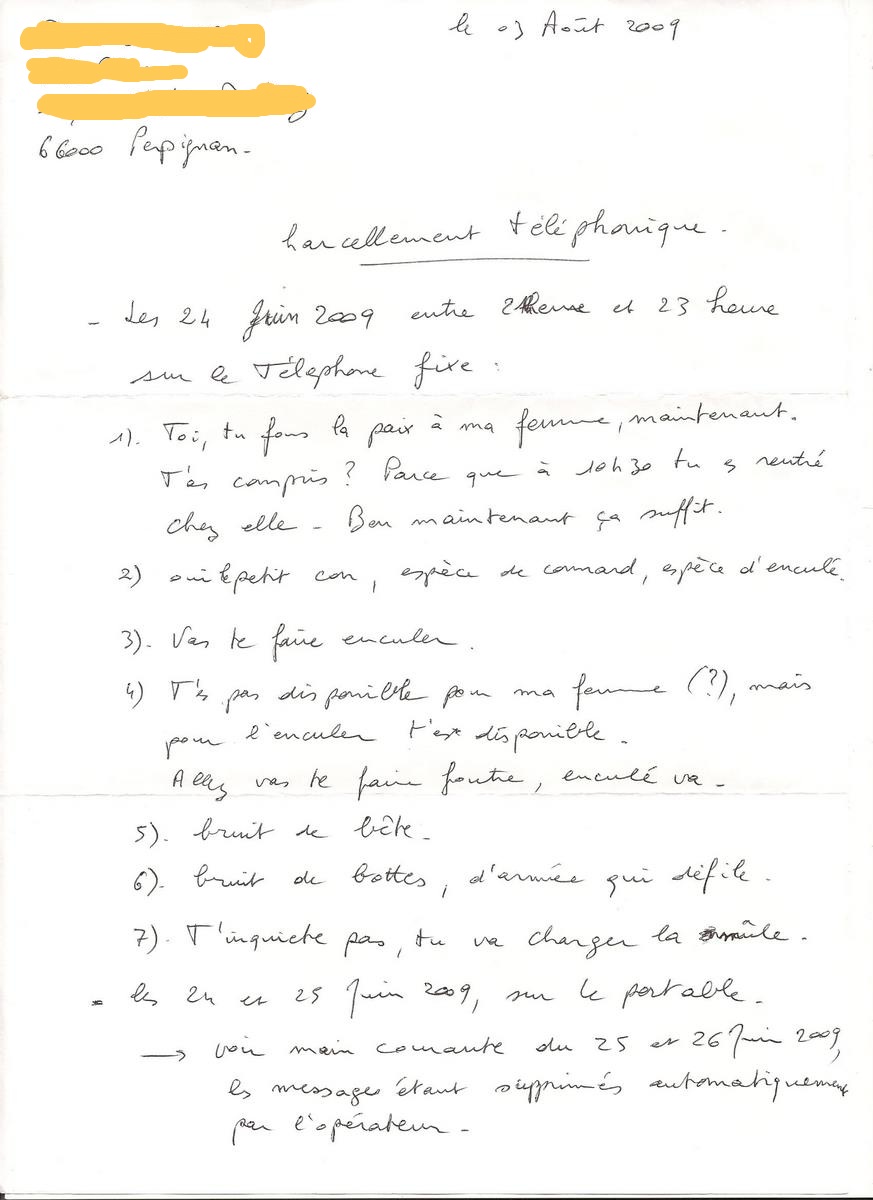 le 03 Août 2009
66000 Perpignan.
harcellement téléphonique.
- Les 24 Juin 2009 entre 21heure et 23 heure
sur le Téléphone fixe :
1). Toi, tu fous la paix à ma femme, maintenant.
T'as compris ? Parce que à 10h30 tu es rentré
chez elle - Ben maintenant ça suffit.
2) oui le petit con, espèce de connard, espèce d'enculé.
3). Vas te faire enculer.
4) T'es pas disponible pour ma femme (?), mais
pour l'enculer t'es disponible.
Allez vas te faire foutre, enculé va -
5). bruit de bête -
6). bruit de bottes, d'armée qui défile.
7). T'inquiete pas, tu va charger la mûle.
- les 24 et 25 Juin 2009, sur le portable.
→ voir main courante du 25 et 26 Juin 2009,
les messages étant supprimés automatiquement
par l'opérateur -